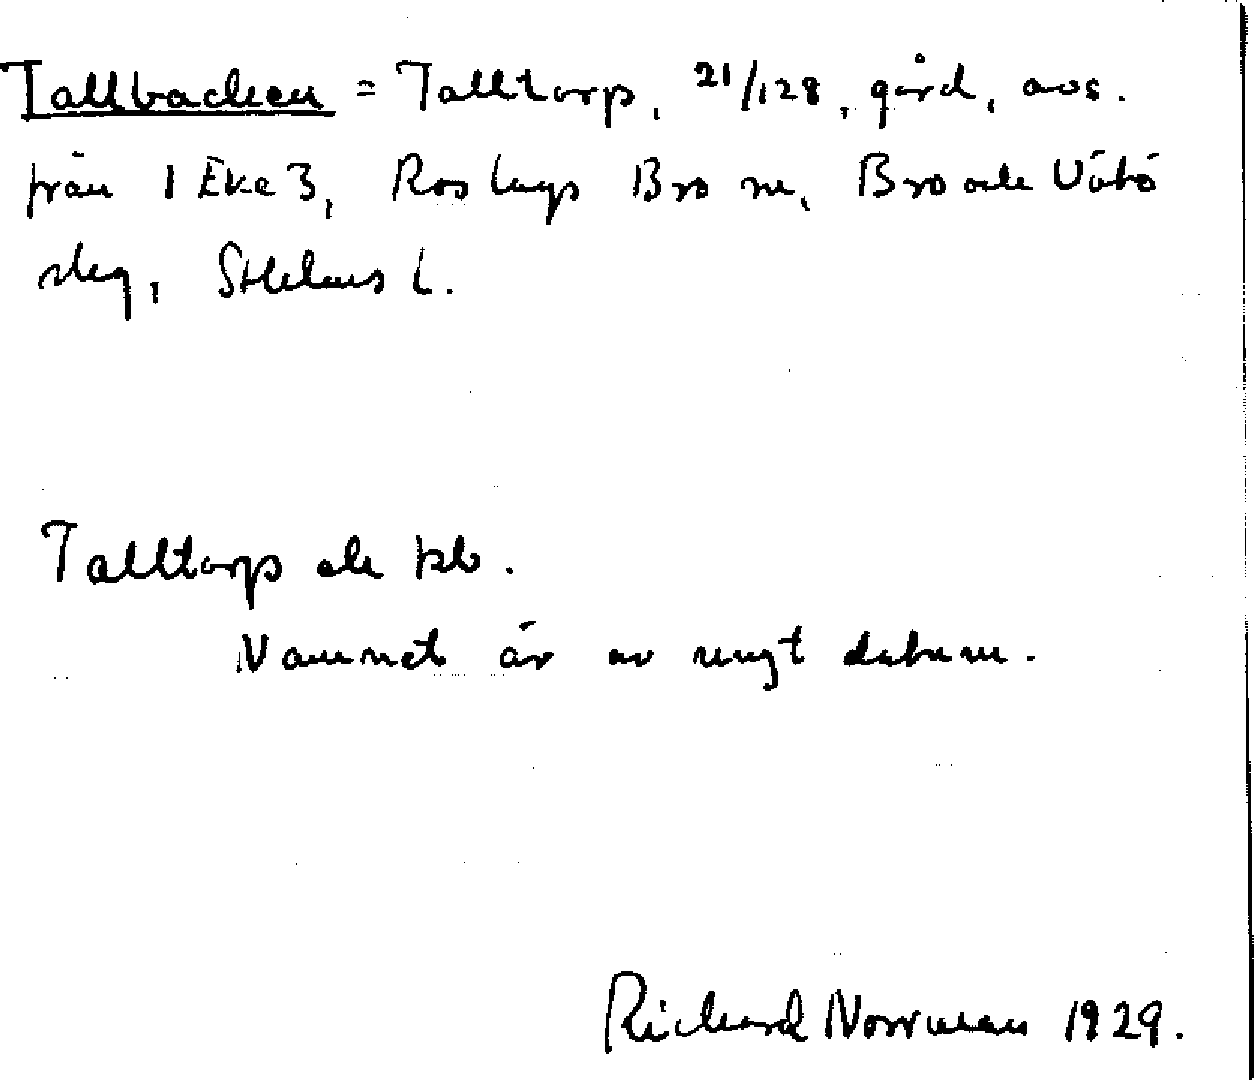 Tallbacken = Talltorp, 21/128, gård, avs.
från 1 Eka 3, Roslags Bro sn, Bro och Vätö
slg, Sthlms L.
Talltorp enl kb.
Namnet är av ungt datum.
Richard Norrman 1929.